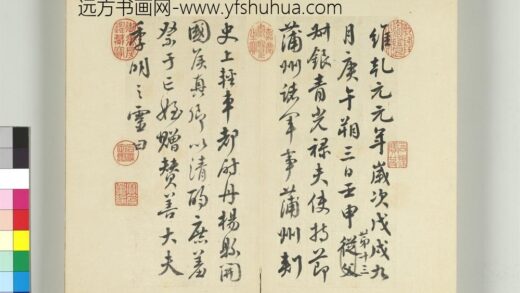 远方书画网-www.yfshuhua.com
維乾元元年歲次戊戌九
月庚午朔三日壬申第十三從父
銀青光祿夫使持節
蒲州諸軍事蒲州刺
史上輕車都尉丹楊縣開
國侯真卿以清酌庶羞
祭于亡姪贈贊善大夫
季明之靈曰